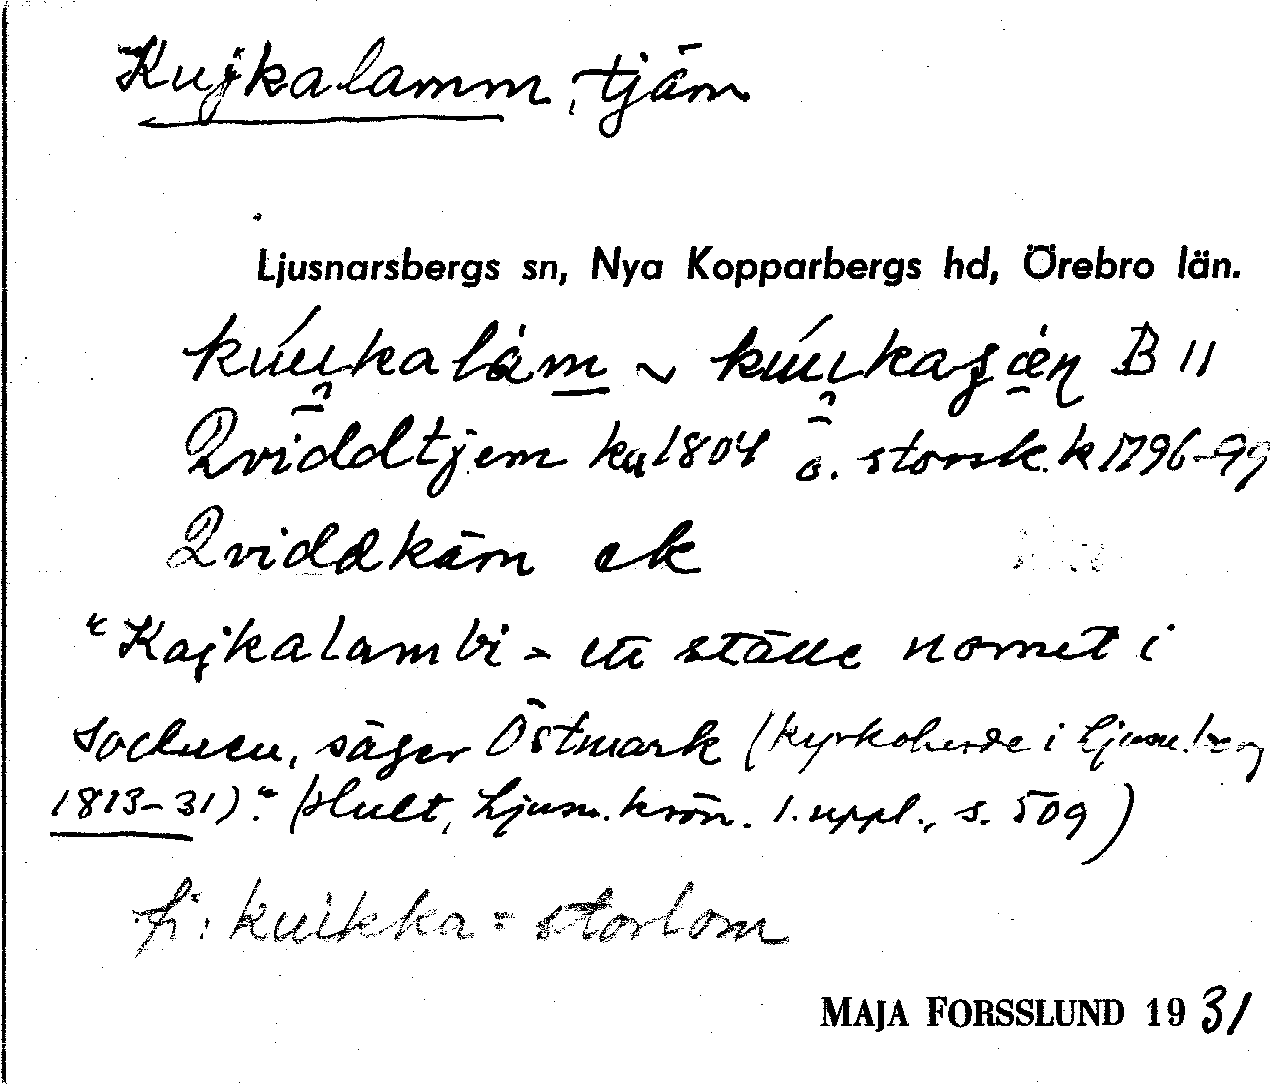 Kujkalamm, tjärn
Ljusnarsbergs sn, Nya Kopparbergs hd, Örebro län.
B 11
Qviddtjern ka 1804 o. storsk. k 1796-99
Qviddkärn ek
"Kajkalambi - ett ställe nornet i
socknen, säger Östmark (kyrkoherde i Ljusn.berg
1813-31)." (Hult, Ljusn. krön. 1. uppl., s. 509)
fi: kuikka = storlom
MAJA FORSSLUND 1931